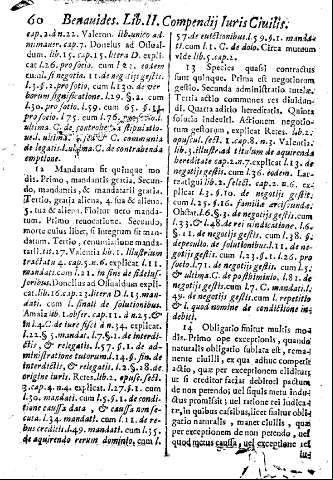 60 Benavides. Lib.II. Compendij Iuris Civilis.
cap.2.à n.22. Valeron. lib.unico ad-
nimauer. cap.7. Donelus ad Osual-
dum. lib.15. cap.15. litera D. expli-
cat l.26. prosocio. cum l.21. de negotijs
gestis. l. si negotia. 11. de neg dijs gestis.
l.5. §.2. pro socio, cum l.130. de ver-
borum significatione. l.29. §.2. cum
l.30. pro socio. l.59. cum 65. §.
pro socio. l.76. cum l.
ultima C. de
l. ultima C. communia
de legatis. l. ultima C. de contrahenda
emptione.
12 Mandatum fit quinque mo-
dis. Primo, mandantis gratia. Secun-
do, mandantis, & mandatarij gratia.
Tertio, gratia aliena, 4. sua & aliena.
5. tua & aliena. Finitur vero manda-
tum. Primo revocatione. Secundo,
morte cuius liber, si integrum sit man-
datum. Tertio, renunciatione manda-
tarij. tit.27. Valentia lib.1. illustrium
tractatu 4. cap.5. n.6. explicat l.12.
mandati. cum l.21. in fine de fideius-
soribus. Donelus ad Osualdum explicat
cat lib.16. cap.23. litera D. l.13. man-
dati. cum l. finali de solutionibus.
Amaia lib.1. obser. cap.11. à n.23. &
in l.4. C. de iure fisci à n.34. explicat.
l.22. §.5. mandati. l.7. §.1. de interdi-
ctis, & relegatis. l.57. §.1. de ad-
ministratione tutorum. l.14. §. fin. de
interdictis, & relegatis. l.2. §.18. de
origine iuris. Retes lib.2. opusc. sect.
3. cap.4. n.4. explicat. l.27. §.1. cum
l.30. mandati. cum l.5. §.1. de condi-
tione causa data, & causa non se-
cuta. l.34. mandati. cum l.11. de re-
bus creditis. l.49. mandati. cum l.35.
de aquirendo rerum dominio, cum l.
57. de eutictionibus. l.59. §.1. manda-
ti. cum l.1. C. de dolo. Circa mutuum
vide lib.3. cap.2.
13 Species quasi contractus
sunt quinque. Prima est negotiorum
gestio. Secunda administratio tutelæ.
Tertia actio communes res dividun-
di. Quarta aditio hereditatis. Quinta
solutio indebiti. Actionem negotio-
rum gestorum, explicat Retes. lib.2.
opusc. sect.1. cap.8. n.3. Valentia
lib.3. illust. ad titulum de aquirenda
hereditate cap.2. n.7. explicat l.13. de
negotijs gestis. cum l.36. eodem. Lar-
rategui lib.2. select. cap.2. n.6. ex-
plicat l.3. §.10. de negotijs gestis.
cum l.25. §.16. familiæ erciscundæ.
Obstat, l.6. §.3. de negotijs gestis. cum
l.23. & l.48. de rei vindicatione. l.6.
§.11. de negotijs gestis. cum l.38. §.
de peculio. de solutionibus. l.11. de ne-
gotijs gestis. cum l.23. §.1. l.26. pro
socio. l.71. de negotijs gestis. cum l.5.
& ultima C. de postliminio. l.82. de
negotijs gestis. cum l.7. C. mandati. l.
49. de negotijs gestis. cum l. repetitio
& l. quod nomine de conditione in-
debiti.
14 Obligatio finitur multis mo-
dis. Primo ope exceptionis, quando
naturalis obligatio sublata est, rema-
nente civili, ex qua adhuc competit
actio, quæ per exceptionem eliditur
ut si creditor faciat debitori pactum
de non petendo; vel si quis metu indu-
ctus promissit; vel ratione rei iudica-
tæ, in quibus casibus, licet finitur obli-
gatio naturalis, manet civilis, quæ
per exceptionem de non petendo, vel
quod metus causa, vel exceptione rei
iud